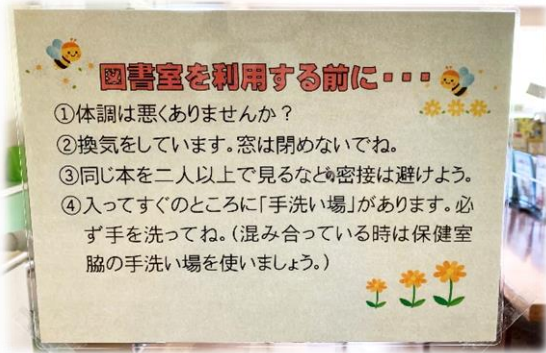 図書室を利用する前に・・・
①体調は悪くありませんか？
②換気をしています。窓は閉めないでね。
③同じ本を二人以上で見るなど、密接は避けよう。
④入ってすぐのところに「手洗い場」があります。必
ず手を洗ってね。（混み合っている時は保健室
脇の手洗い場を使いましょう。）